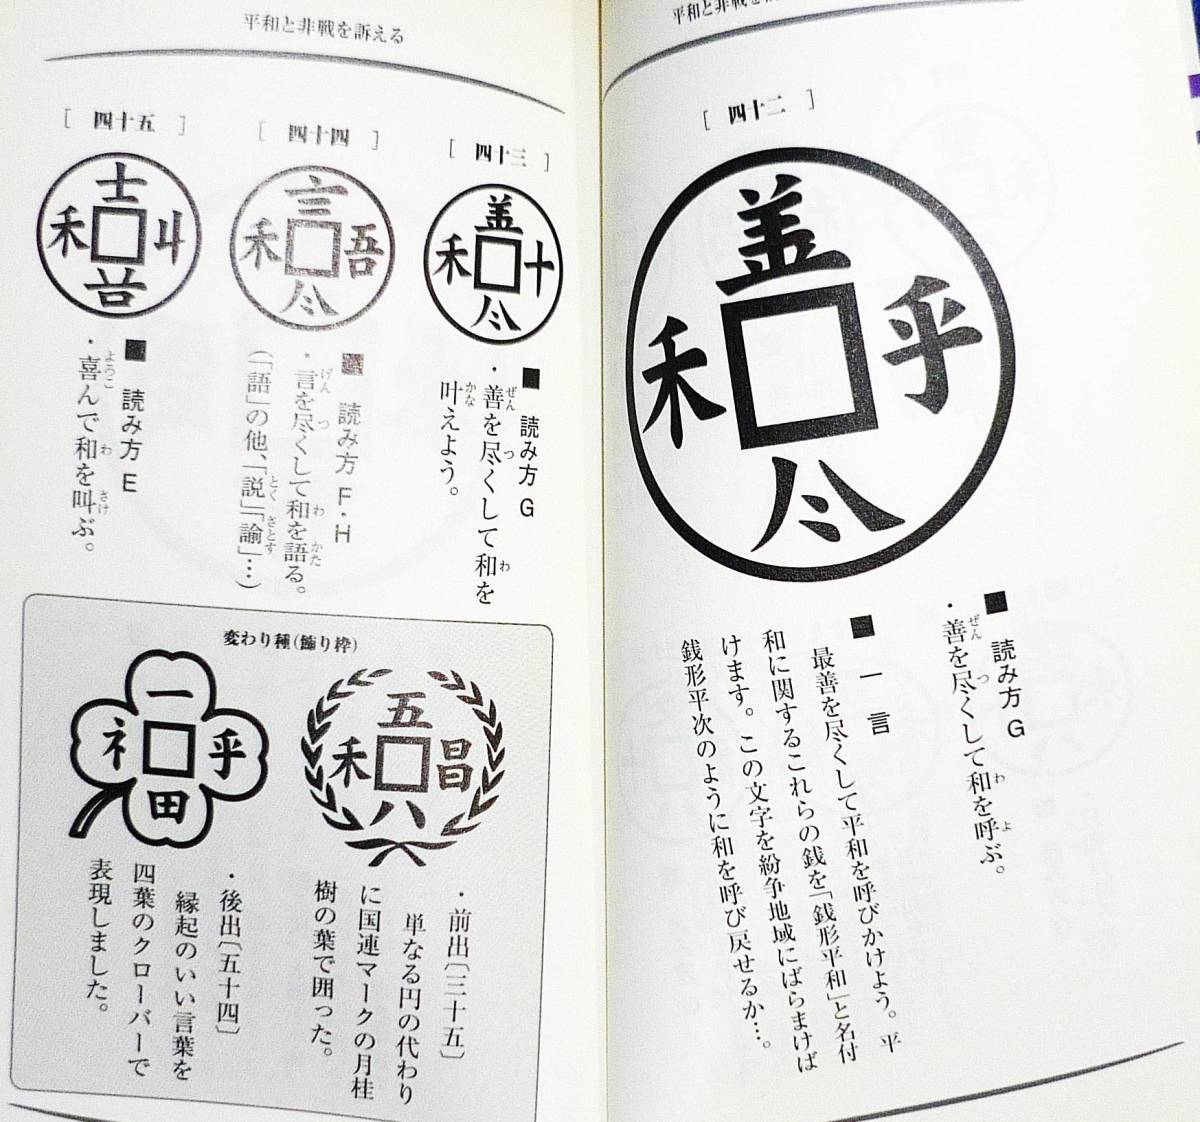 平和と非戦を訴える
[四十二]
善
乎
禾
尽
■ 読み方 G
・善を尽くして和を呼ぶ。
ぜん つ わ よ
■ 一言
最善を尽くして平和を呼びかけよう。平
和に関するこれらの銭を「銭形平和」と名付
けます。この文字を紛争地域にばらまけば
銭形平次のように和を呼び戻せるか…。
平和と非戦を訴える
[四十三]
善
十
禾
■ 読み方 G
・善を尽くして和を
ぜん つ わ
叶えよう。
かな
[四十四]
言
吾
禾
■ 読み方 F・H
・言を尽くして和を語る。
げん つ わ かた
(「語」の他、「説」「諭」…)
とく さとす
[四十五]
士
禾
■ 読み方 E
・喜んで和を叫ぶ。
よろこ わ さけ
変わり種(飾り枠)
五
昌
禾
八
・前出[三十五]
単なる円の代わり
に国連マークの月桂
樹の葉で囲った。
一
乎
ネ
田
・後出[五十四]
縁起のいい言葉を
四葉のクローバーで
表現しました。